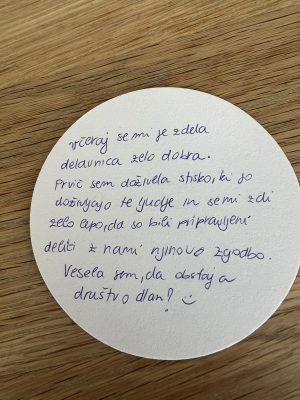 včeraj se mi je zdela
delavnica zelo dobra.
Prvič sem doživela stisko, ki jo
doživljajo te ljudje in se mi zdi
zelo lepo, da so bili pripravljeni
deliti z nami njihovo zgodbo.
Vesela sem, da obstaja
društvo dlan! ☺